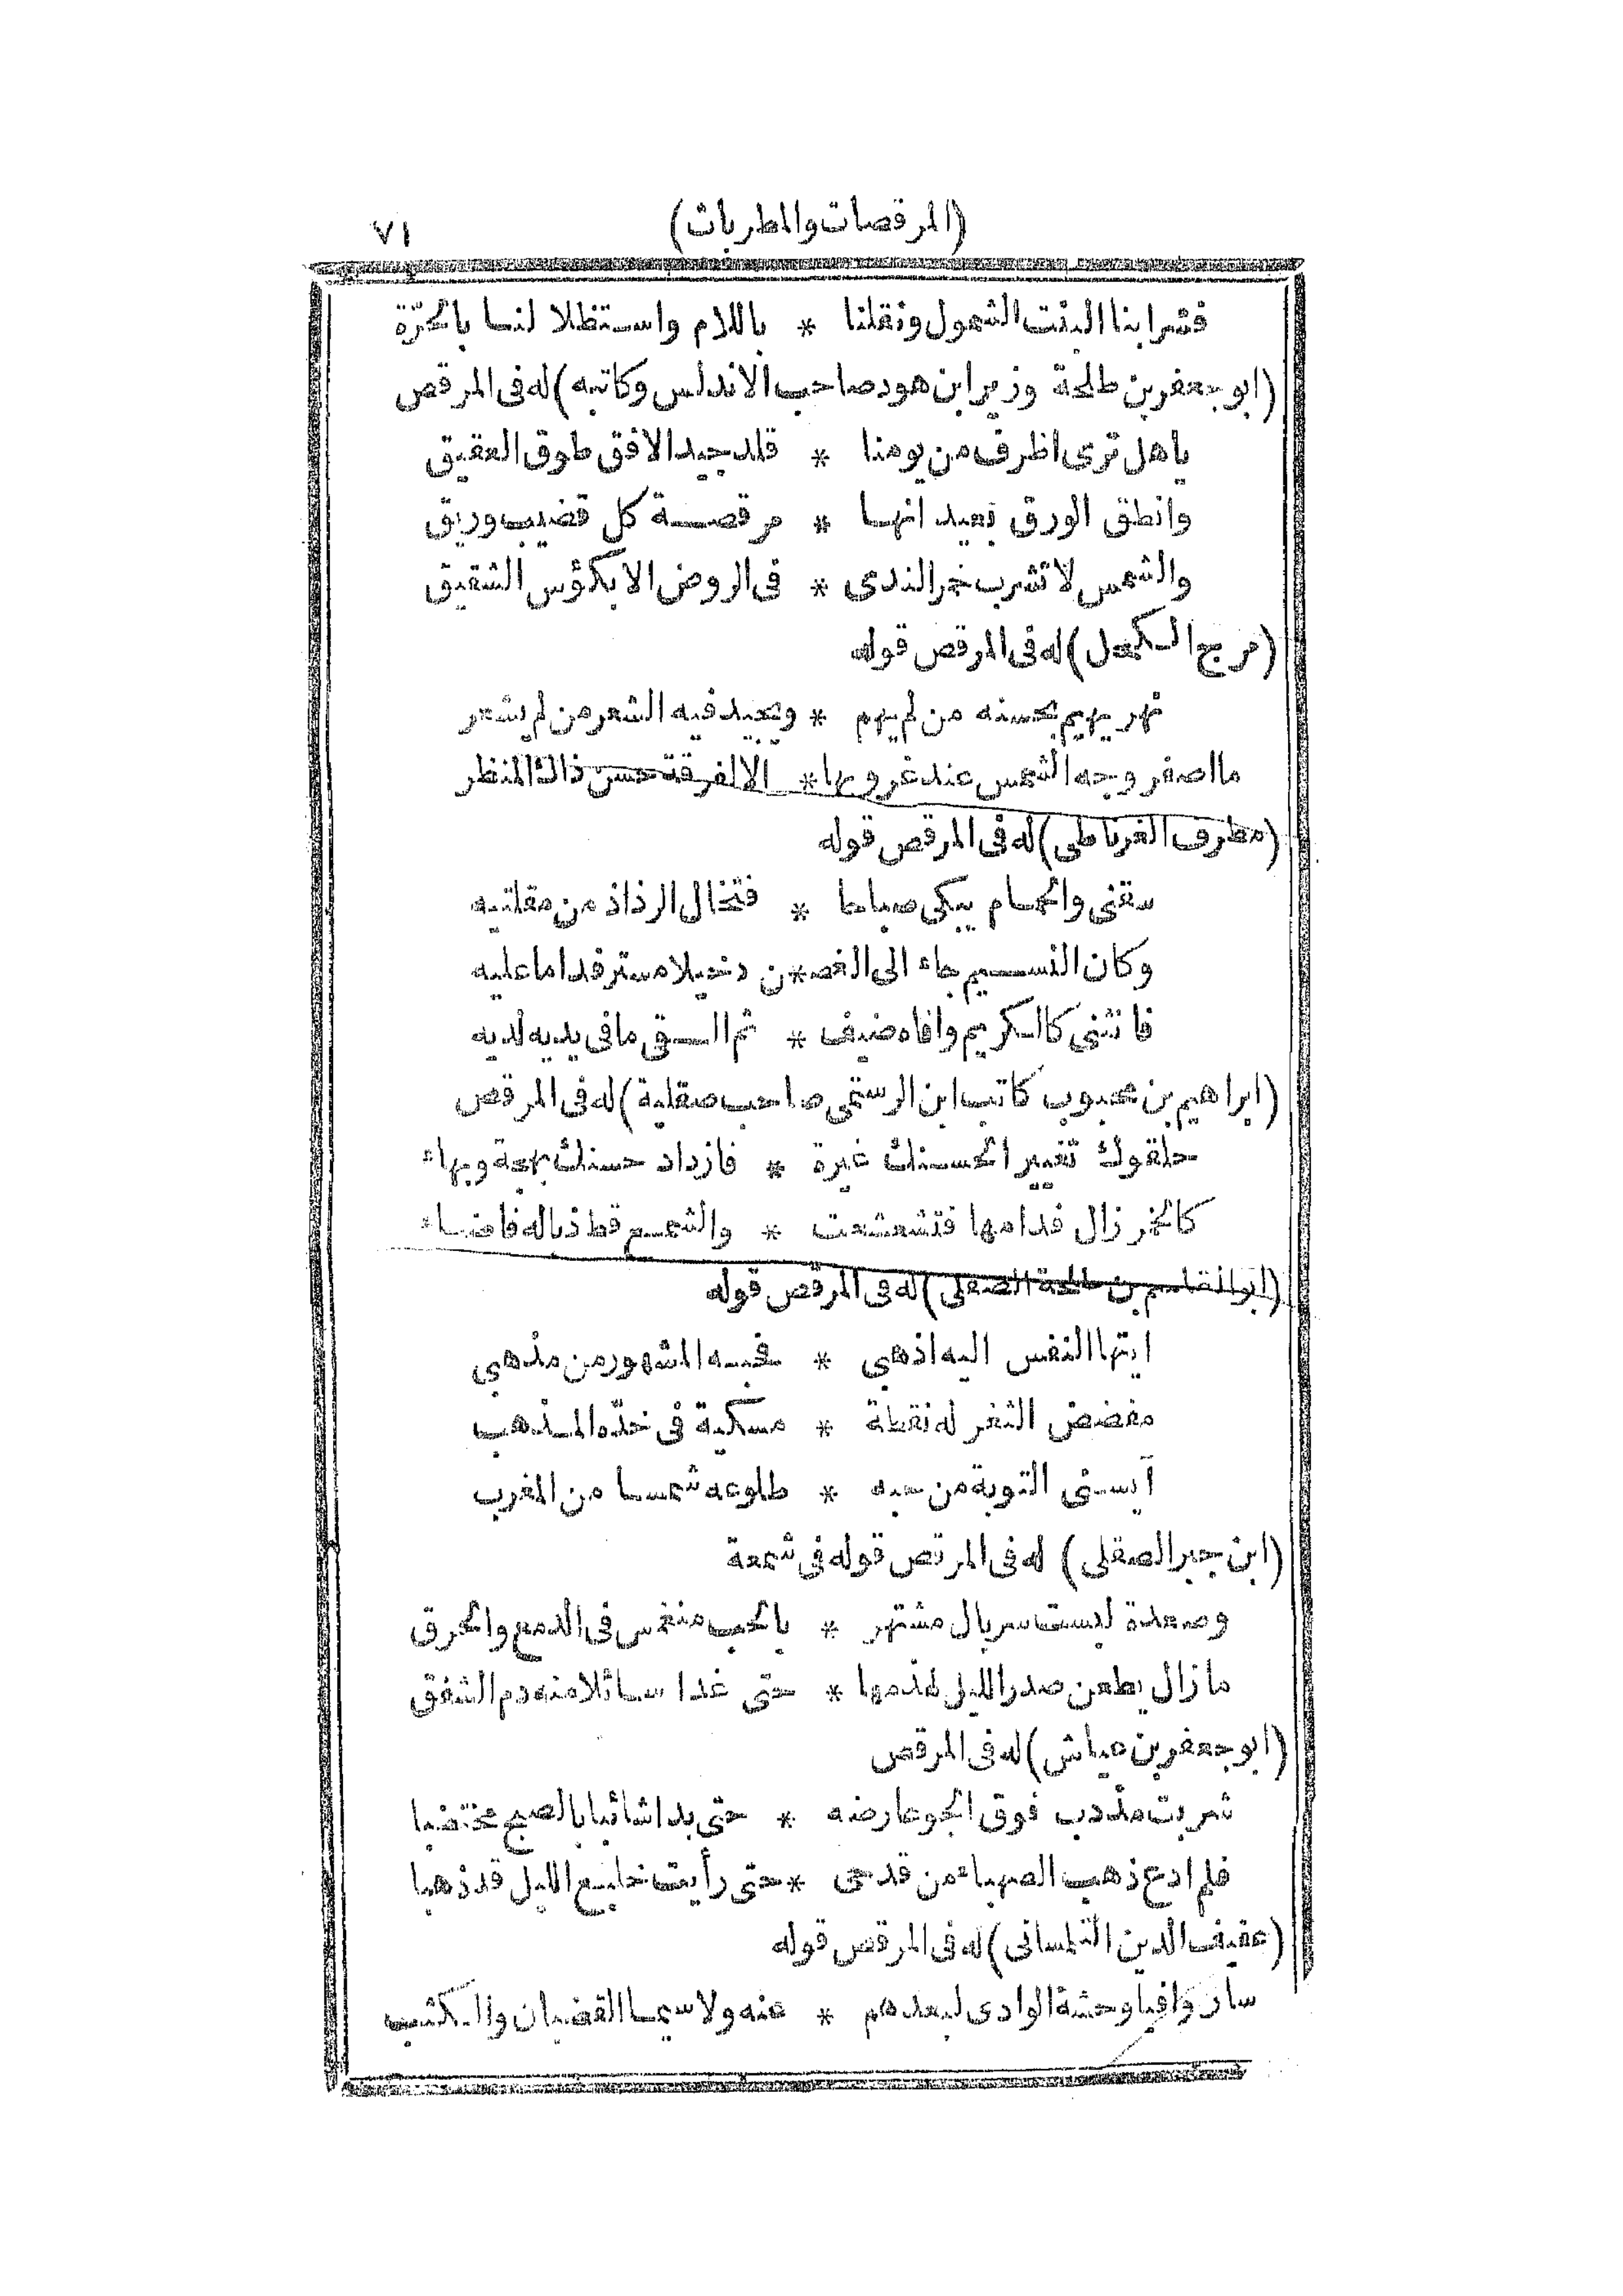 (المرقصات والمطربات) ٧١
فشرابنا البنت الشمول ونقلنا * باللام واستظلالنا بالحرّة
(ابو جعفر بن طلحة وزير ابن هود صاحب الاندلس وكاتبه) له فى المرقص
يا هل ترى اظرف من يومنا * قلد جيد الافق طوق العقيق
وانطق الورق بعيدانها * مرقصة كل قضيب وريق
والشمس لا تشرب خمر الندى * فى الروض الا بكؤس الشقيق
(مرج الكحل) له فى المرقص قوله
نهر يهيم بحسنه من لم يهم * ويجيد فيه الشعر من لم يشعر
ما اصفر وجه الشمس عند غروبها * الا لفرقة حسن ذاك المنظر
(مطرف الغرناطى) له فى المرقص قوله
سقنى والحمام يبكى صباحا * فتخال الرذاذ من مقلتيه
وكان النسيم جاء الى الغص*ن دخيلا مسترفدا ما عليه
فانثنى كالكريم وافاه ضيف * ثم القى ما فى يديه لديه
(ابراهيم بن محبوب كاتب ابن الرستمى صاحب صقلية) له فى المرقص
حلقوك تغييرا لحسنك غيرة * فازداد حسنك بهجة وبهاء
كالخمر زال فدامها فتشعشعت * والشمع قط ذباله فاضاء
(ابو القاسم بن طلحة الصقلى) له فى المرقص قوله
ايتها النفس اليه اذهبى * فحبه المشهور من مذهبى
مفضض الثغر له نقطة * مسكية فى خدّه المذهب
آيسنى التوبة من حبه * طلوعه شمسا من المغرب
(ابن جبر الصقلى) له فى المرقص قوله فى شمعة
وصعدة لبست سربال مشتهر * بالحب منغمس فى الدمع والحرق
ما زال يطعن صدر الليل لهذمها * حتى غدا سائلا منه دم الشفق
(ابو جعفر بن عياش) له فى المرقص
شربت مذ دب فوق الجو عارضه * حتى بدا شائبا بالصبح مختضبا
فلم ادع ذهب الصهباء من قدحى * حتى رأيت خليع الليل قد ذهبا
(عفيف الدين التلمسانى) له فى المرقص قوله
ساروا فيا وحشة الوادى لبعدهم * عنه ولا سيما القضبان والكثب